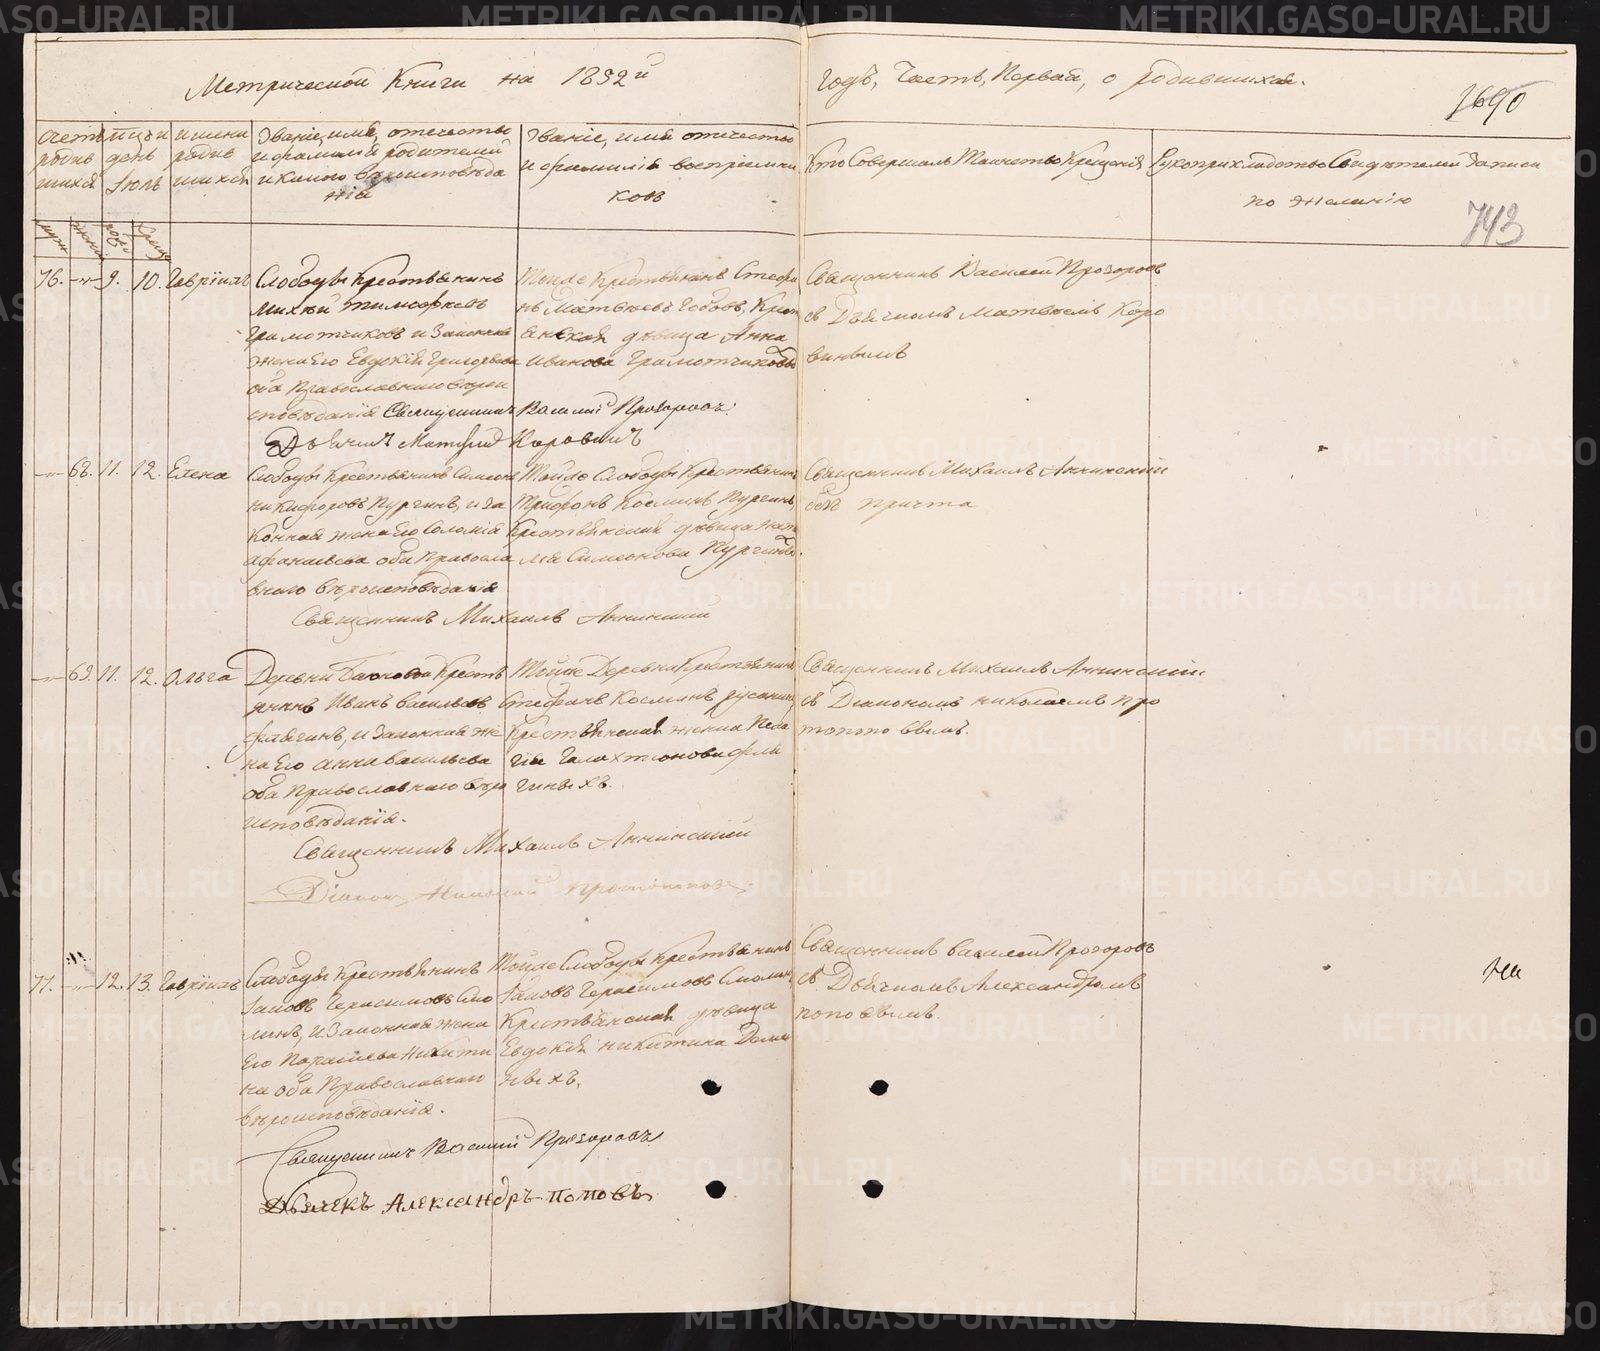 Метрической Книги на 1892й
годъ, Часть, Первая, о родившихся.
1690
743
Счетъ родив шихся
мцъ и день Іюль
имена родив шихся
Званіе, имя, отечество
и фамилія родителей
и какого вѣроисповѣда
нія
Званіе, имя отечество
и фамилія воспріемни
ковъ
Кто Совершалъ Таинство Крещенія
Рукоприкладство Свидѣтелей Записи
по желанію
76. 9. 10. Гавріилъ
Слободы Крестьянинъ
Михей Тимофѣевъ
Грамотчиковъ и Законная
жена Его Евдокія Григорьева
оба Православнаго вѣрои
сповѣданія Священникъ Василій Прозоровъ.
Дьячекъ Матвѣй Коровинъ
Тойже Крестьянинъ Стефа
нъ Матвѣевъ Бобовъ, Крест
янская дѣвица Анна
Иванова Грамотчикова
Священникъ Василей Прозоровъ
съ Дьячкомъ Матвѣемъ Коро
винымъ
68. 11. 12. Елена
Слободы Крестьянинъ Симеонъ
Никифоровъ Пургинъ, и За
конная жена Его Соломія
Афанасьева оба Правосла
внаго вѣроисповѣданія
Священникъ Михаилъ Аннинский
Тойже Слободы Крестьянинъ
Трифонъ Косминъ Пургинъ,
Крестьянская дѣвица Ната
лія Симеонова Пургина.
Священникъ Михаилъ Аннинский
безъ причта
69. 11. 12. Ольга
Деревни Крестья
янинъ Иванъ Васильевъ
и Законная же
на Его Анна Васильева
оба Православнаго вѣро
исповѣданія.
Священникъ Михаилъ Аннинский
Діаконъ Николай Протопоповъ.
Тойже Деревни Крестьянинъ
Стефанъ Косминъ Русанинъ,
Крестьянская женка Пела
гія Галахтіонова
гиныхъ.
Священникъ Михаилъ Аннинский
съ Діакономъ Николаемъ Про
топоповымъ.
77. 12. 13. Гавріилъ
Слободы Крестьянинъ
Іаковъ Герасимовъ Смо
линъ, и Законная жена
Его Параскева Никити
на оба Православнаго
вѣроисповѣданія.
Священникъ Василий Прозоровъ
Дьячекъ Александръ Поповъ
Тойже Слободы Крестьянинъ
Іаковъ Герасимовъ Смолинъ,
Крестьянская дѣвица
Евдокія Никитина
ныхъ.
Священникъ Василей Прозоровъ
съ Дьячкомъ Александромъ
Поповымъ.
На
METRIKI.GASO-URAL.RU